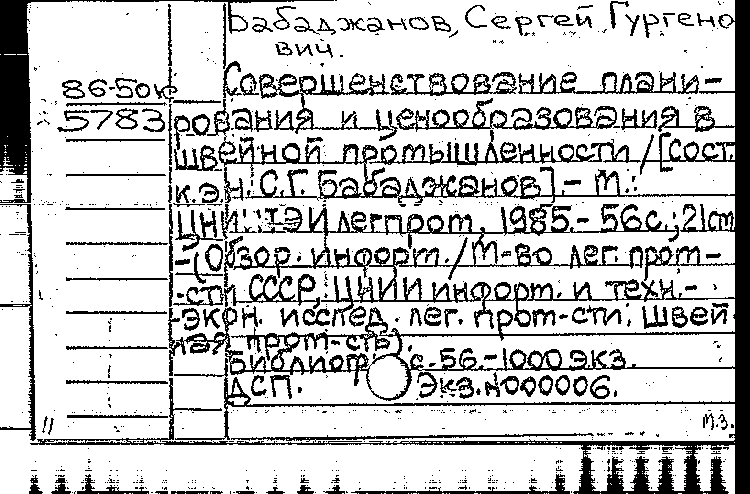 Бабаджанов, Сергей Гургено
вич.
86-50к Совершенствование плани-
5783 рования и ценообразования в
швейной промышленности / [сост.
к.э.н. С.Г. Бабаджанов].- М.:
ЦНИИТЭИлегпром, 1985.- 56 с.; 21 см
-(Обзор. информ./М-во лег. пром-
-сти СССР, ЦНИИ информ. и техн.-
-экон. исслед. лег. пром-сти; Швей
ная пром-сть).
Библиогр.: с. 56.-1000 экз.
ДСП. Экз. N000006.
11 М.З.